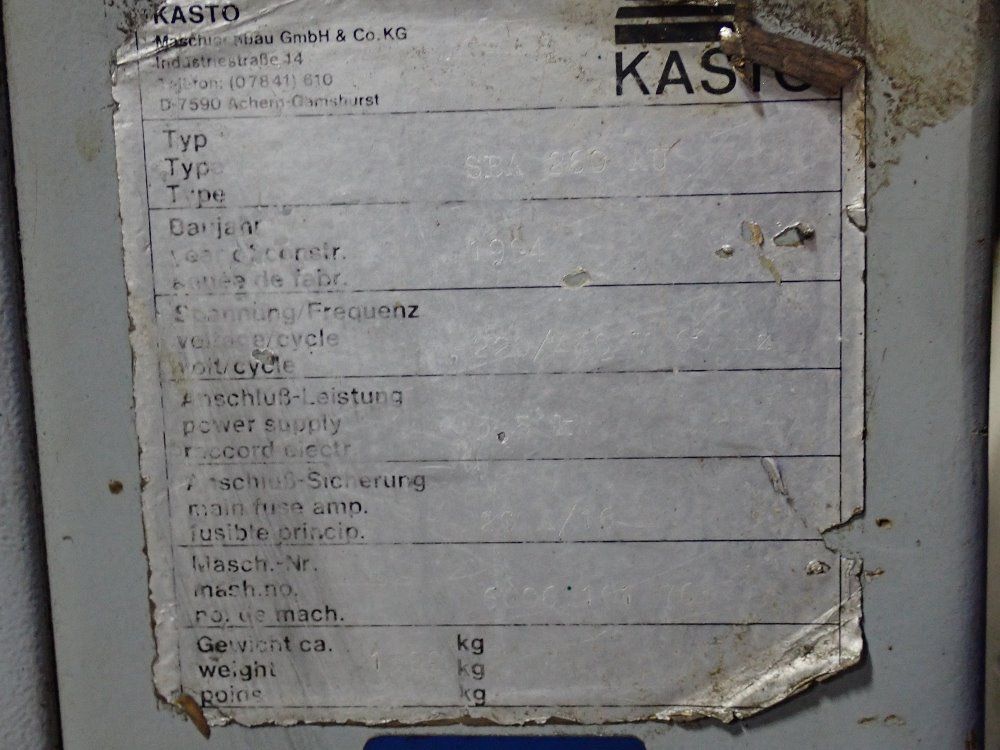 KASTO
Maschinenbau GmbH & Co. KG
Industriestraße 14
Telefon: (07841) 610
D-7590 Achern-Gamshurst
KASTO
Typ
Type
Type
SBA 260 U
Baujahr
year of constr.
année de fabr.
1984
Spannung/Frequenz
voltage/cycle
volt/cycle
Anschluß-Leistung
power supply
raccord electr.
Anschluß-Sicherung
main fuse amp.
fusible princip.
Masch.-Nr.
mash.no.
no. de mach.
Gewicht ca. kg
weight kg
poids kg